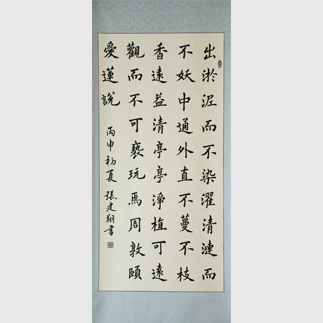 出淤泥而不染濯清漣而
不妖中通外直不蔓不枝
香遠益清亭亭淨植可遠
觀而不可褻玩焉周敦頤
愛蓮說
丙申初夏張書